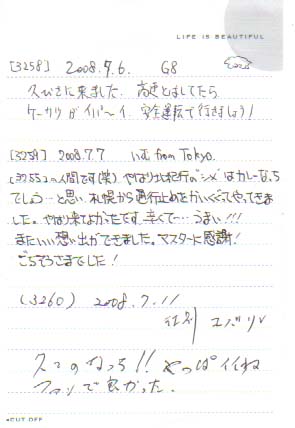 LIFE IS BEAUTIFUL
[3258] 2008.7.6. G8
久びさに来ました. 高速とばしてたら
ケーサツがイパーイ. 安全運転で行きましょう!
[3259] 2008.7.7 from Tokyo.
(3255)の人間です(笑) やはり北紀行の"シメ"はカレーなっち
でしょう…と思い、札幌から通行止めをかいくぐってやってきま
した。やはり来てよかったです。辛くて…うまい!!!
またいい想い出ができました。マスターに感謝!
ごちそうさまでした!
(3260) 2008.7.11
江別 ユバリ
スゴのなっち!! やっぱイイね
で良かった.
CUT OFF